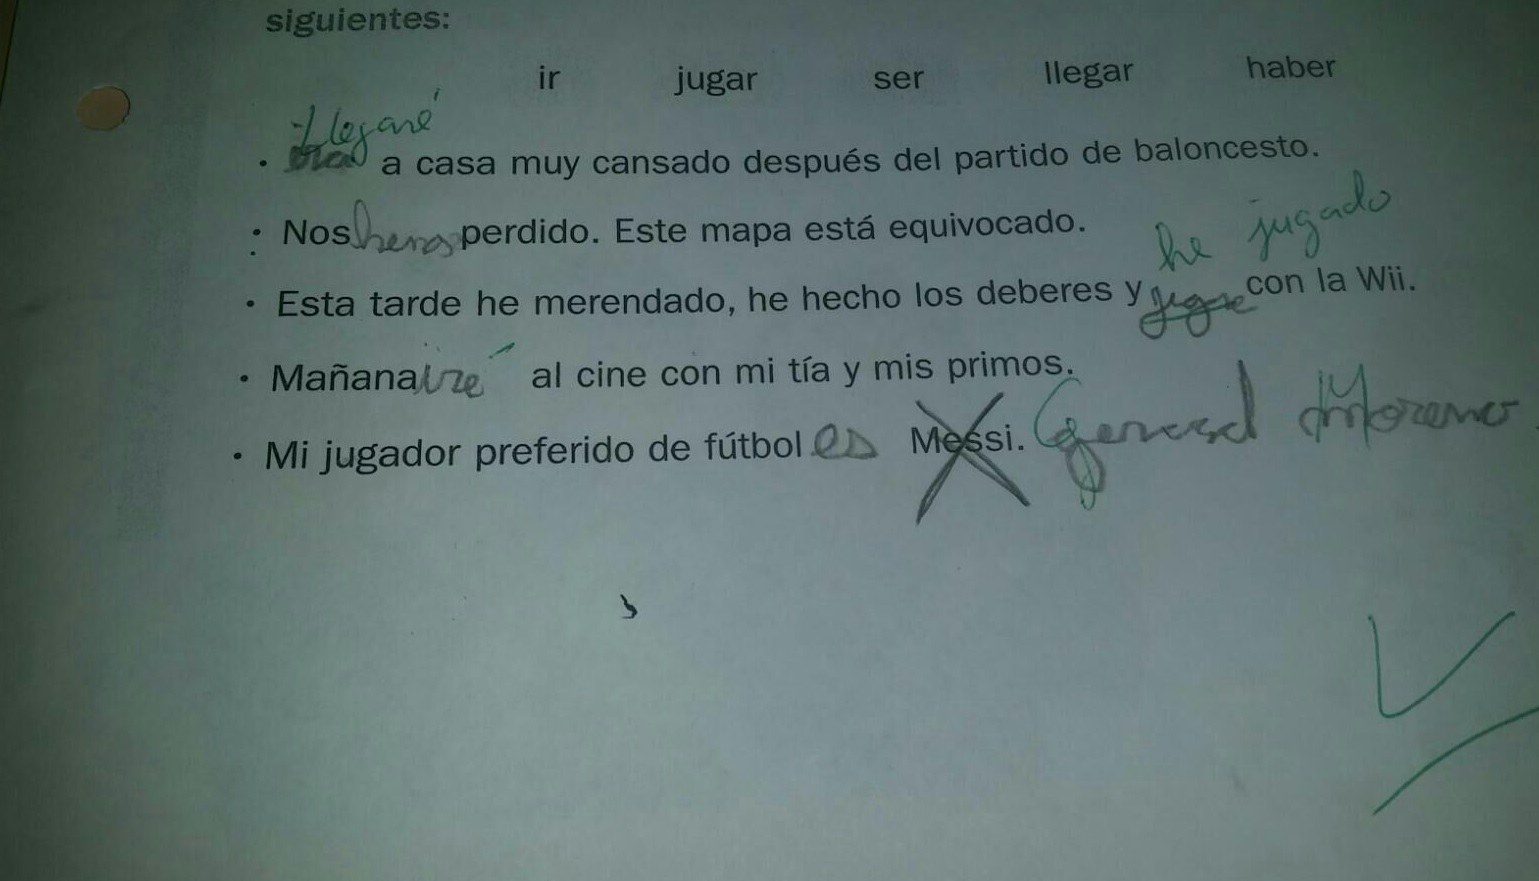 siguientes:
ir jugar ser llegar haber
Llegaré
· a casa muy cansado después del partido de baloncesto.
· Nos hemos perdido. Este mapa está equivocado.
he jugado
· Esta tarde he merendado, he hecho los deberes y jugre con la Wii.
· Mañana iré al cine con mi tía y mis primos.
· Mi jugador preferido de fútbol es Messi. Gerard Moreno